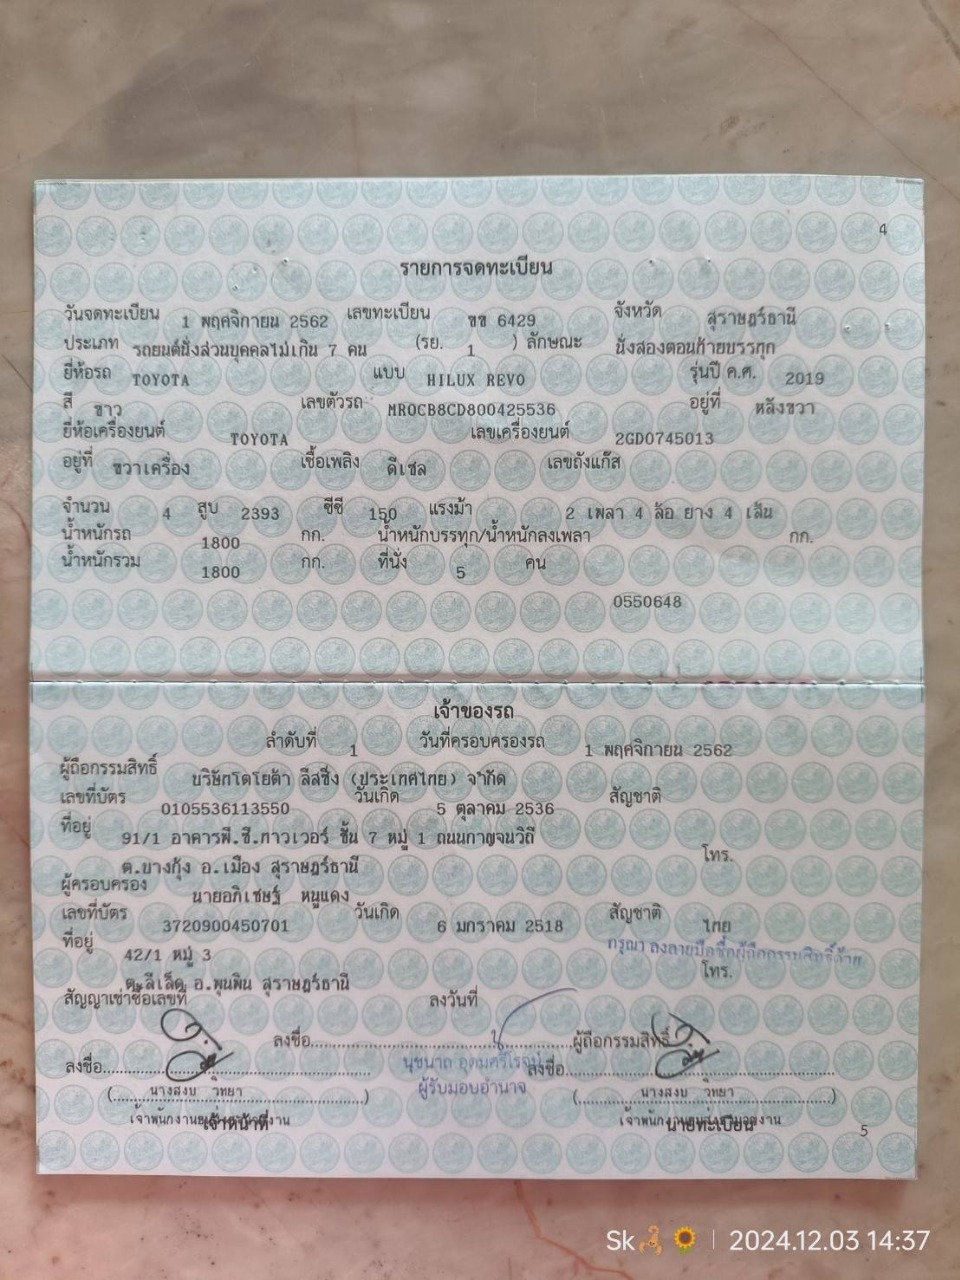 4
รายการจดทะเบียน
วันจดทะเบียน 1 พฤศจิกายน 2562 เลขทะเบียน ขข 6429 จังหวัด สุราษฎร์ธานี
ประเภท รถยนต์นั่งส่วนบุคคลไม่เกิน 7 คน (รย. 1 ) ลักษณะ นั่งสองตอนท้ายบรรทุก
ยี่ห้อรถ TOYOTA แบบ HILUX REVO รุ่นปี ค.ศ. 2019
สี ขาว เลขตัวรถ MR0CB8CD800425536 อยู่ที่ หลังขวา
ยี่ห้อเครื่องยนต์ TOYOTA เลขเครื่องยนต์ 2GD0745013
อยู่ที่ ขวาเครื่อง เชื้อเพลิง ดีเซล เลขถังแก๊ส
จำนวน 4 สูบ 2393 ซีซี 150 แรงม้า 2 เพลา 4 ล้อ ยาง 4 เส้น
น้ำหนักรถ 1800 กก. น้ำหนักบรรทุก/น้ำหนักลงเพลา กก.
น้ำหนักรวม 1800 กก. ที่นั่ง 5 คน
0550648
เจ้าของรถ
ลำดับที่ 1 วันที่ครอบครองรถ 1 พฤศจิกายน 2562
ผู้ถือกรรมสิทธิ์ บริษัทโตโยต้า ลีสซิ่ง (ประเทศไทย) จำกัด
เลขที่บัตร 0105536113550 วันเกิด 5 ตุลาคม 2536 สัญชาติ
ที่อยู่ 91/1 อาคารพี.ซี.ทาวเวอร์ ชั้น 7 หมู่ 1 ถนนกาญจนวิถี
ต.บางกุ้ง อ.เมือง สุราษฎร์ธานี โทร.
ผู้ครอบครอง นายอภิเชษฐ์ หนูแดง
เลขที่บัตร 3720900450701 วันเกิด 6 มกราคม 2518 สัญชาติ ไทย
ที่อยู่ 42/1 หมู่ 3 กรุณา ลงลายมือชื่อผู้ถือกรรมสิทธิ์ด้วย
ต.ลีเล็ด อ.พุนพิน สุราษฎร์ธานี โทร.
สัญญาเช่าซื้อเลขที่ ลงวันที่
ลงชื่อ ผู้ถือกรรมสิทธิ์
ลงชื่อ นุชนาถ อุดมศรีโรจน์ ลงชื่อ
(นางสงบ วิทยา) ผู้รับมอบอำนาจ (นางสงบ วิทยา)
เจ้าหน้าที่ นายทะเบียน
5
Sk 2024.12.03 14:37